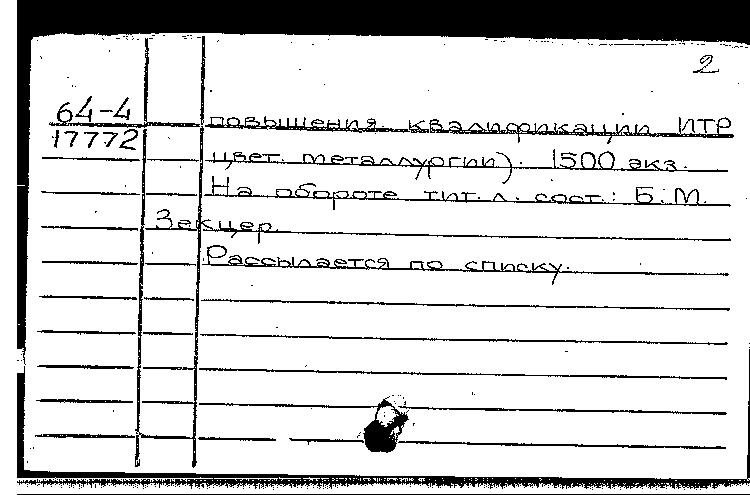 2
64-4
17772
повышения квалификации ИТР
цвет. металлургии). 1500 экз.
На обороте тит. л. сост.: Б. М.
Зекцер.
Рассылается по списку.